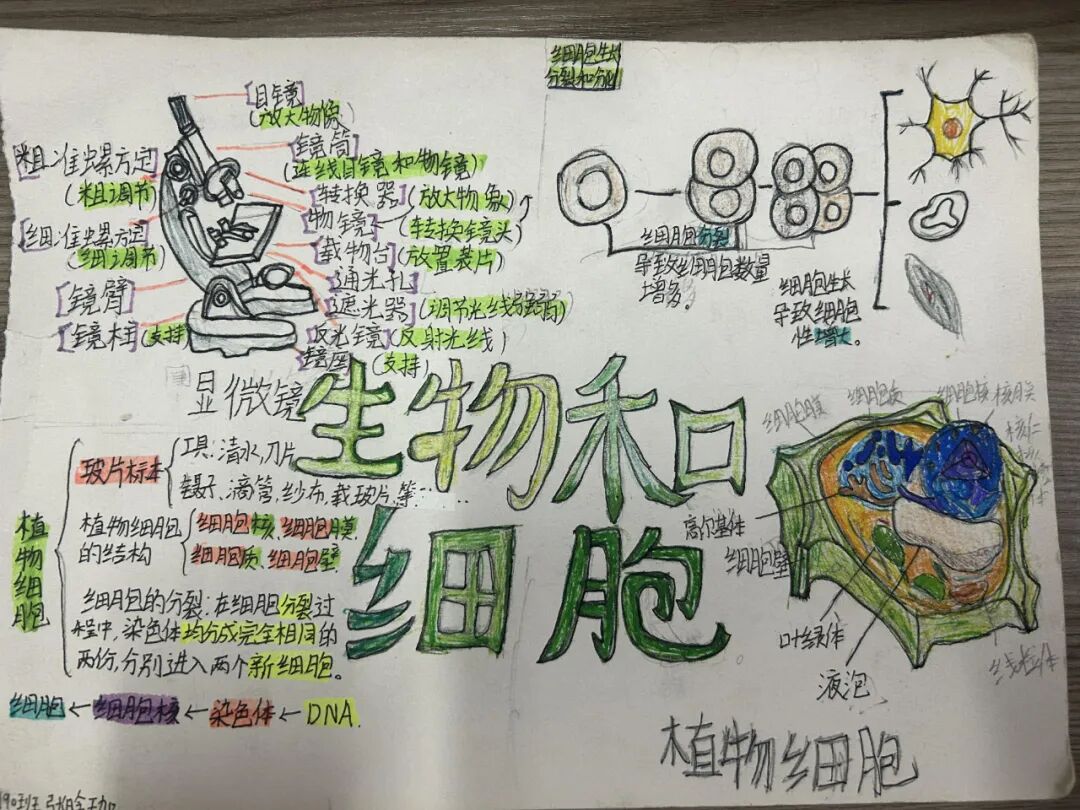 目镜
(放大物像)
镜筒
(连线目镜和物镜)
转换器(放大物象)
物镜(转换镜头)
载物台(放置装片)
通光孔
遮光器(调节光线强弱)
反光镜(反射光线)
镜座(支持)
粗准焦螺旋
(粗调节)
细准焦螺旋
(细调节)
镜臂
镜柱(支持)
显微镜
细胞生长
分裂和分化
细胞分裂
导致细胞数量
增多。
细胞生长
导致细胞
性增大。
生物和
细胞
植物细胞
玻片标本
工具:清水,刀片
镊子、滴管,纱布,载玻片,等……
植物细胞
的结构
细胞核、细胞膜、
细胞质、细胞壁
细胞的分裂:在细胞分裂过
程中,染色体均分成完全相同的
两份,分别进入两个新细胞。
细胞←细胞核←染色体←DNA.
细胞膜
细胞质
细胞核
核膜
核仁
高尔基体
细胞壁
叶绿体
液泡
线粒体
植物细胞
190班